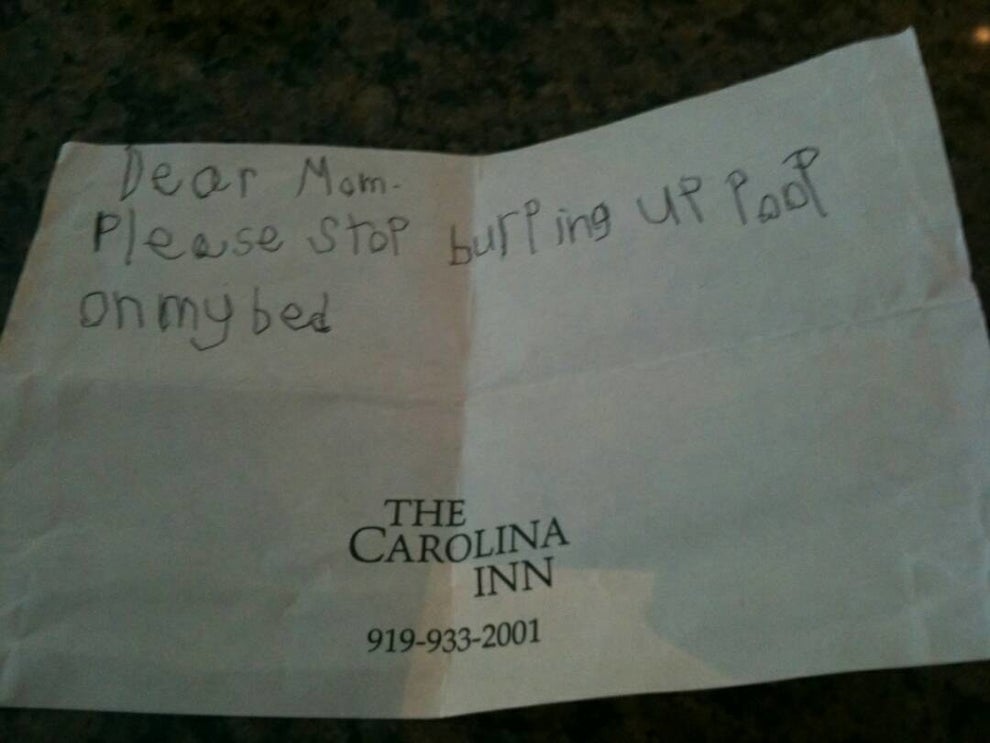 Dear Mom.
Please stop burping up poop
on my bed
THE
CAROLINA
INN
919-933-2001